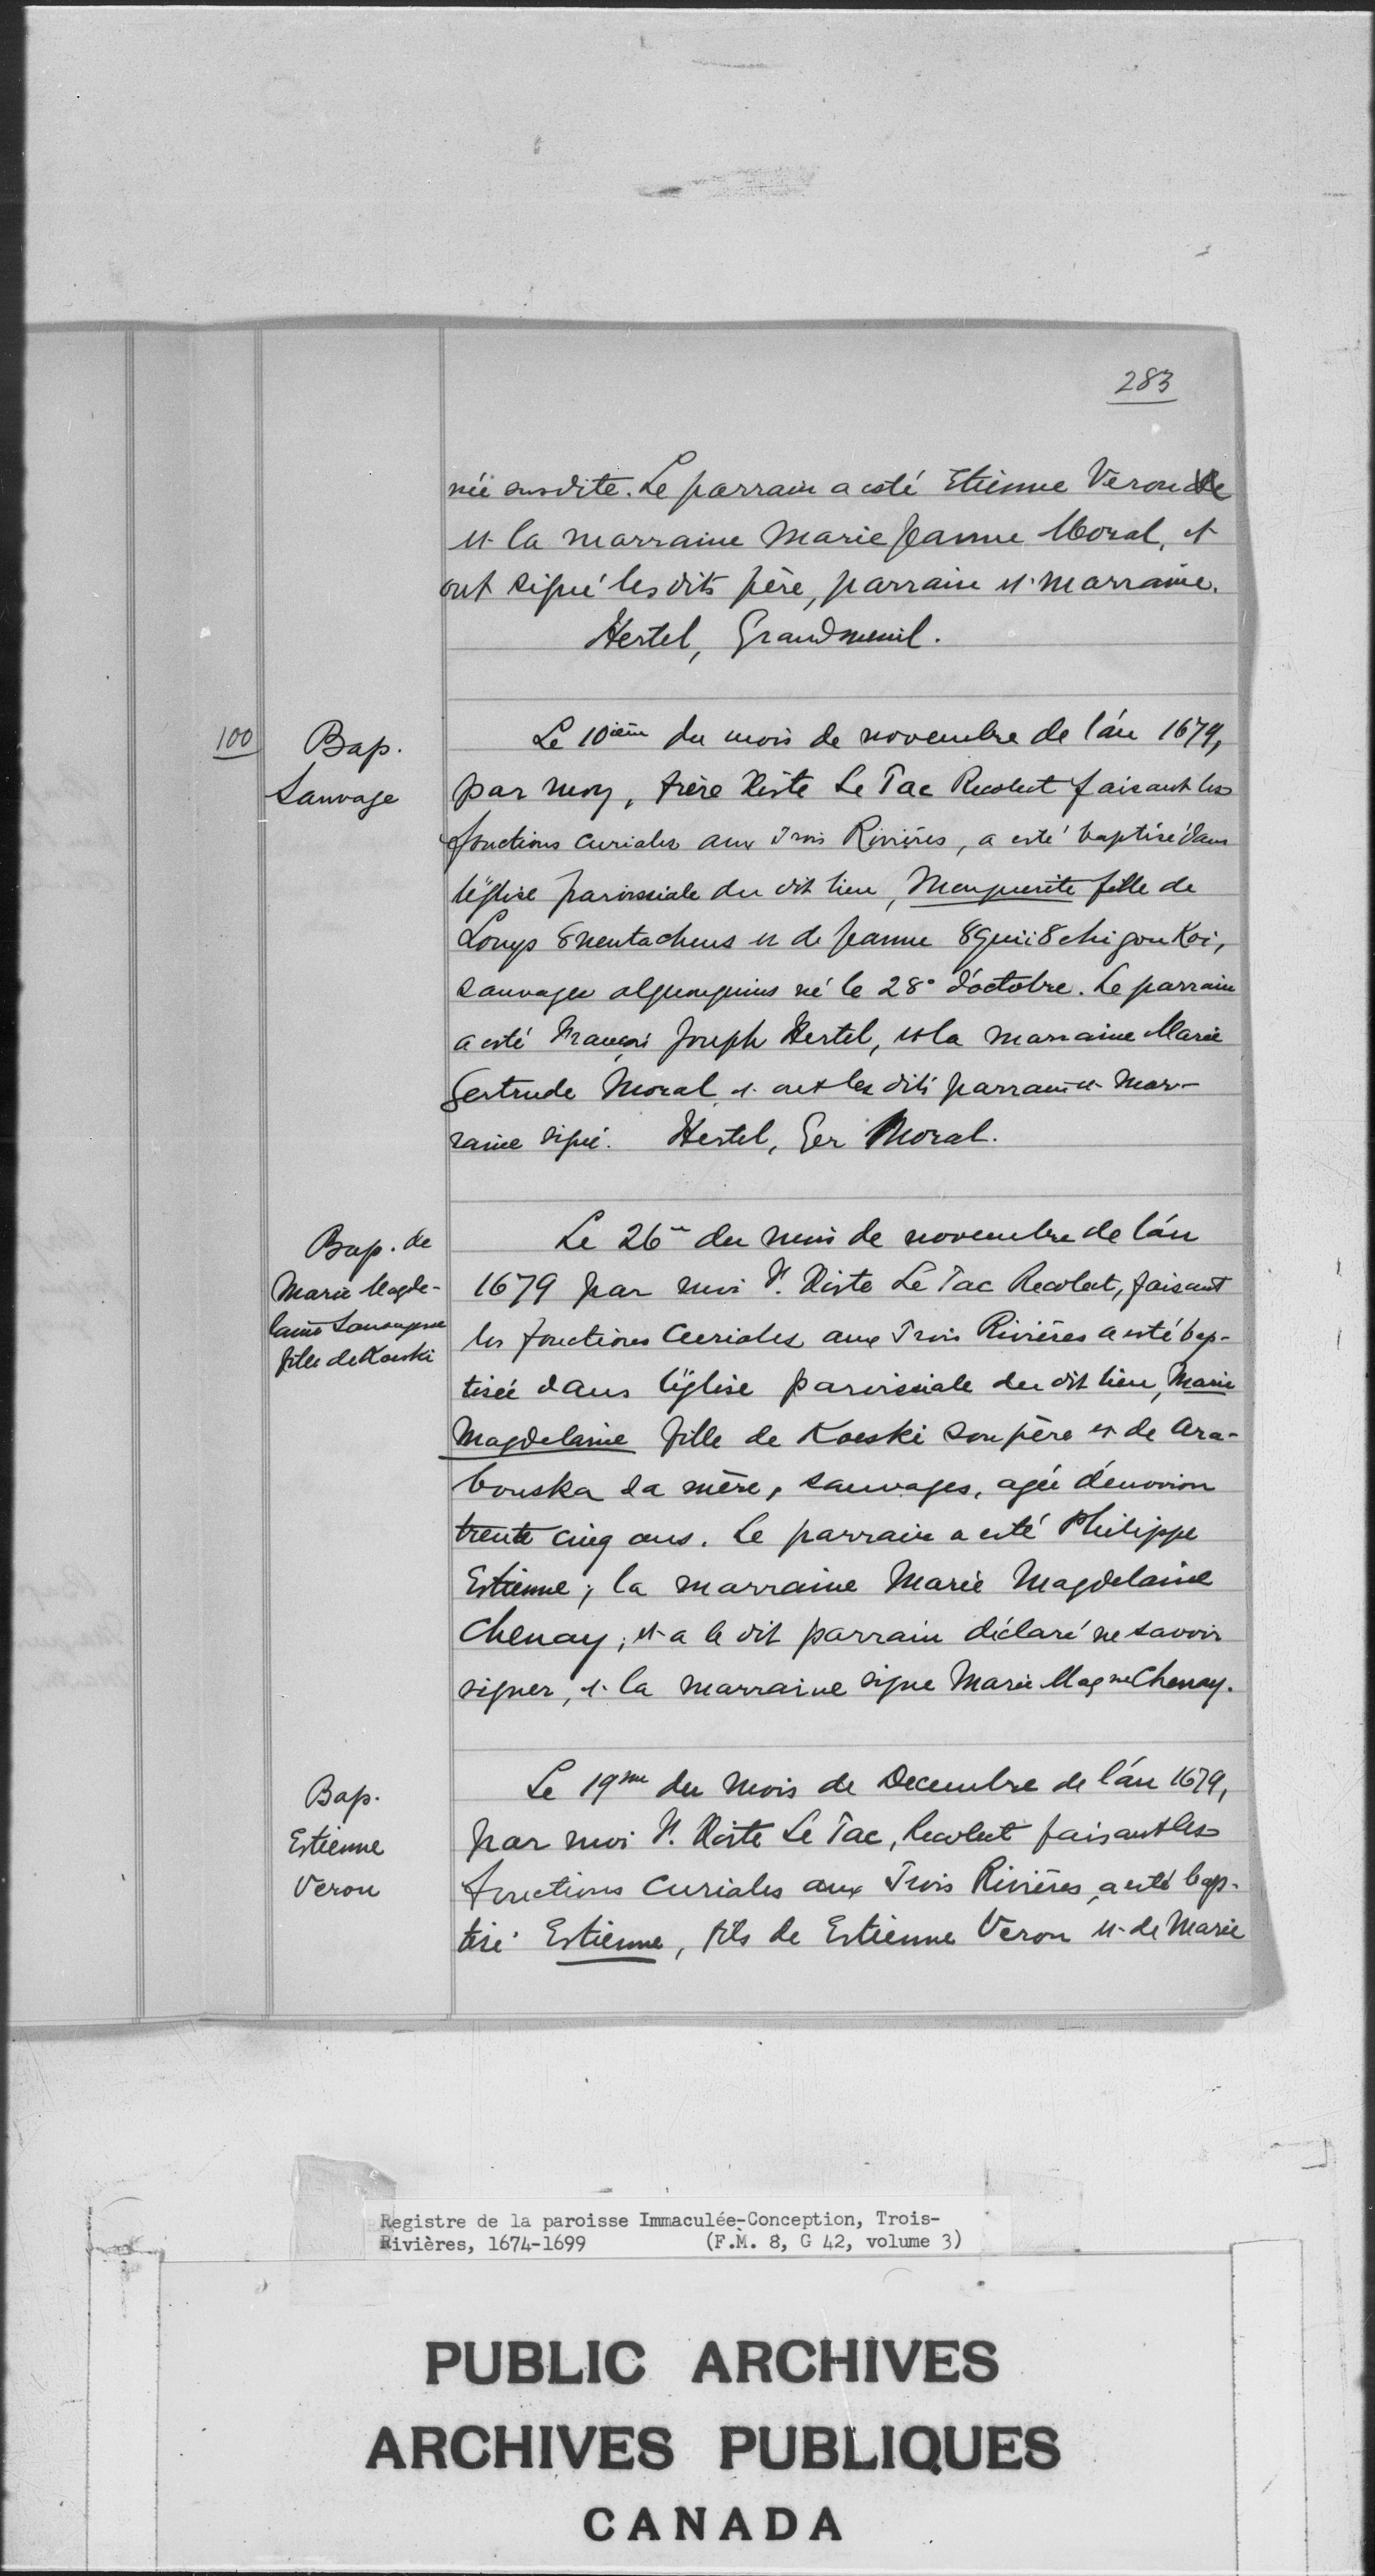 283
née susdite. Le parrain a esté Etienne Veron de
et la marraine Marie Jeanne Moral, et
ont signé les dits père, parrain et marraine.
Hertel, Grandmenil.
100
Bap.
Sauvage
Le 10ième du mois de novembre de l'an 1679,
par moy, frère Xiste Le Tac Recolect faisant les
fonctions curiales aux Trois Rivières, a esté baptisé dans
l'église paroissiale du dit lieu, Marguerite fille de
Louys 8nentacheus et de Jeanne 8guii8chigouKoi,
sauvages algonquins né le 28e d'octobre. Le parrain
a esté François Joseph Hertel, et la marraine Marie
Gertrude Moral et ont les dits parrain et mar-
raine signé. Hertel, Ger Moral.
Bap. de
Marie Magde-
laine Sauvagesse
fille de Koeski
Le 26e du mois de novembre de l'an
1679 par moi F. Xiste Le Tac Recolect, faisant
les fonctions Curiales aux Trois Rivières a esté bap-
tisée dans l'église paroissiale du dit lieu, Marie
Magdelaine fille de Koeski son père et de Ara-
bouska sa mère, sauvages, agée d'environ
trente cinq ans. Le parrain a esté Philippe
Estienne; la marraine Marie Magdelaine
Chenay; et a le dit parrain déclaré ne savoir
signer, et la marraine signe Marie Magne Chenay.
Bap.
Estienne
Veron
Le 19me du mois de Decembre de l'an 1679,
par moi F. Xiste Le Tac, Recolect faisant les
fonctions curiales aux Trois Rivières, a esté bap-
tisé Estienne, fils de Estienne Veron et de Marie
Registre de la paroisse Immaculée-Conception, Trois-
Rivières, 1674-1699 (F.M. 8, G 42, volume 3)
PUBLIC ARCHIVES
ARCHIVES PUBLIQUES
CANADA